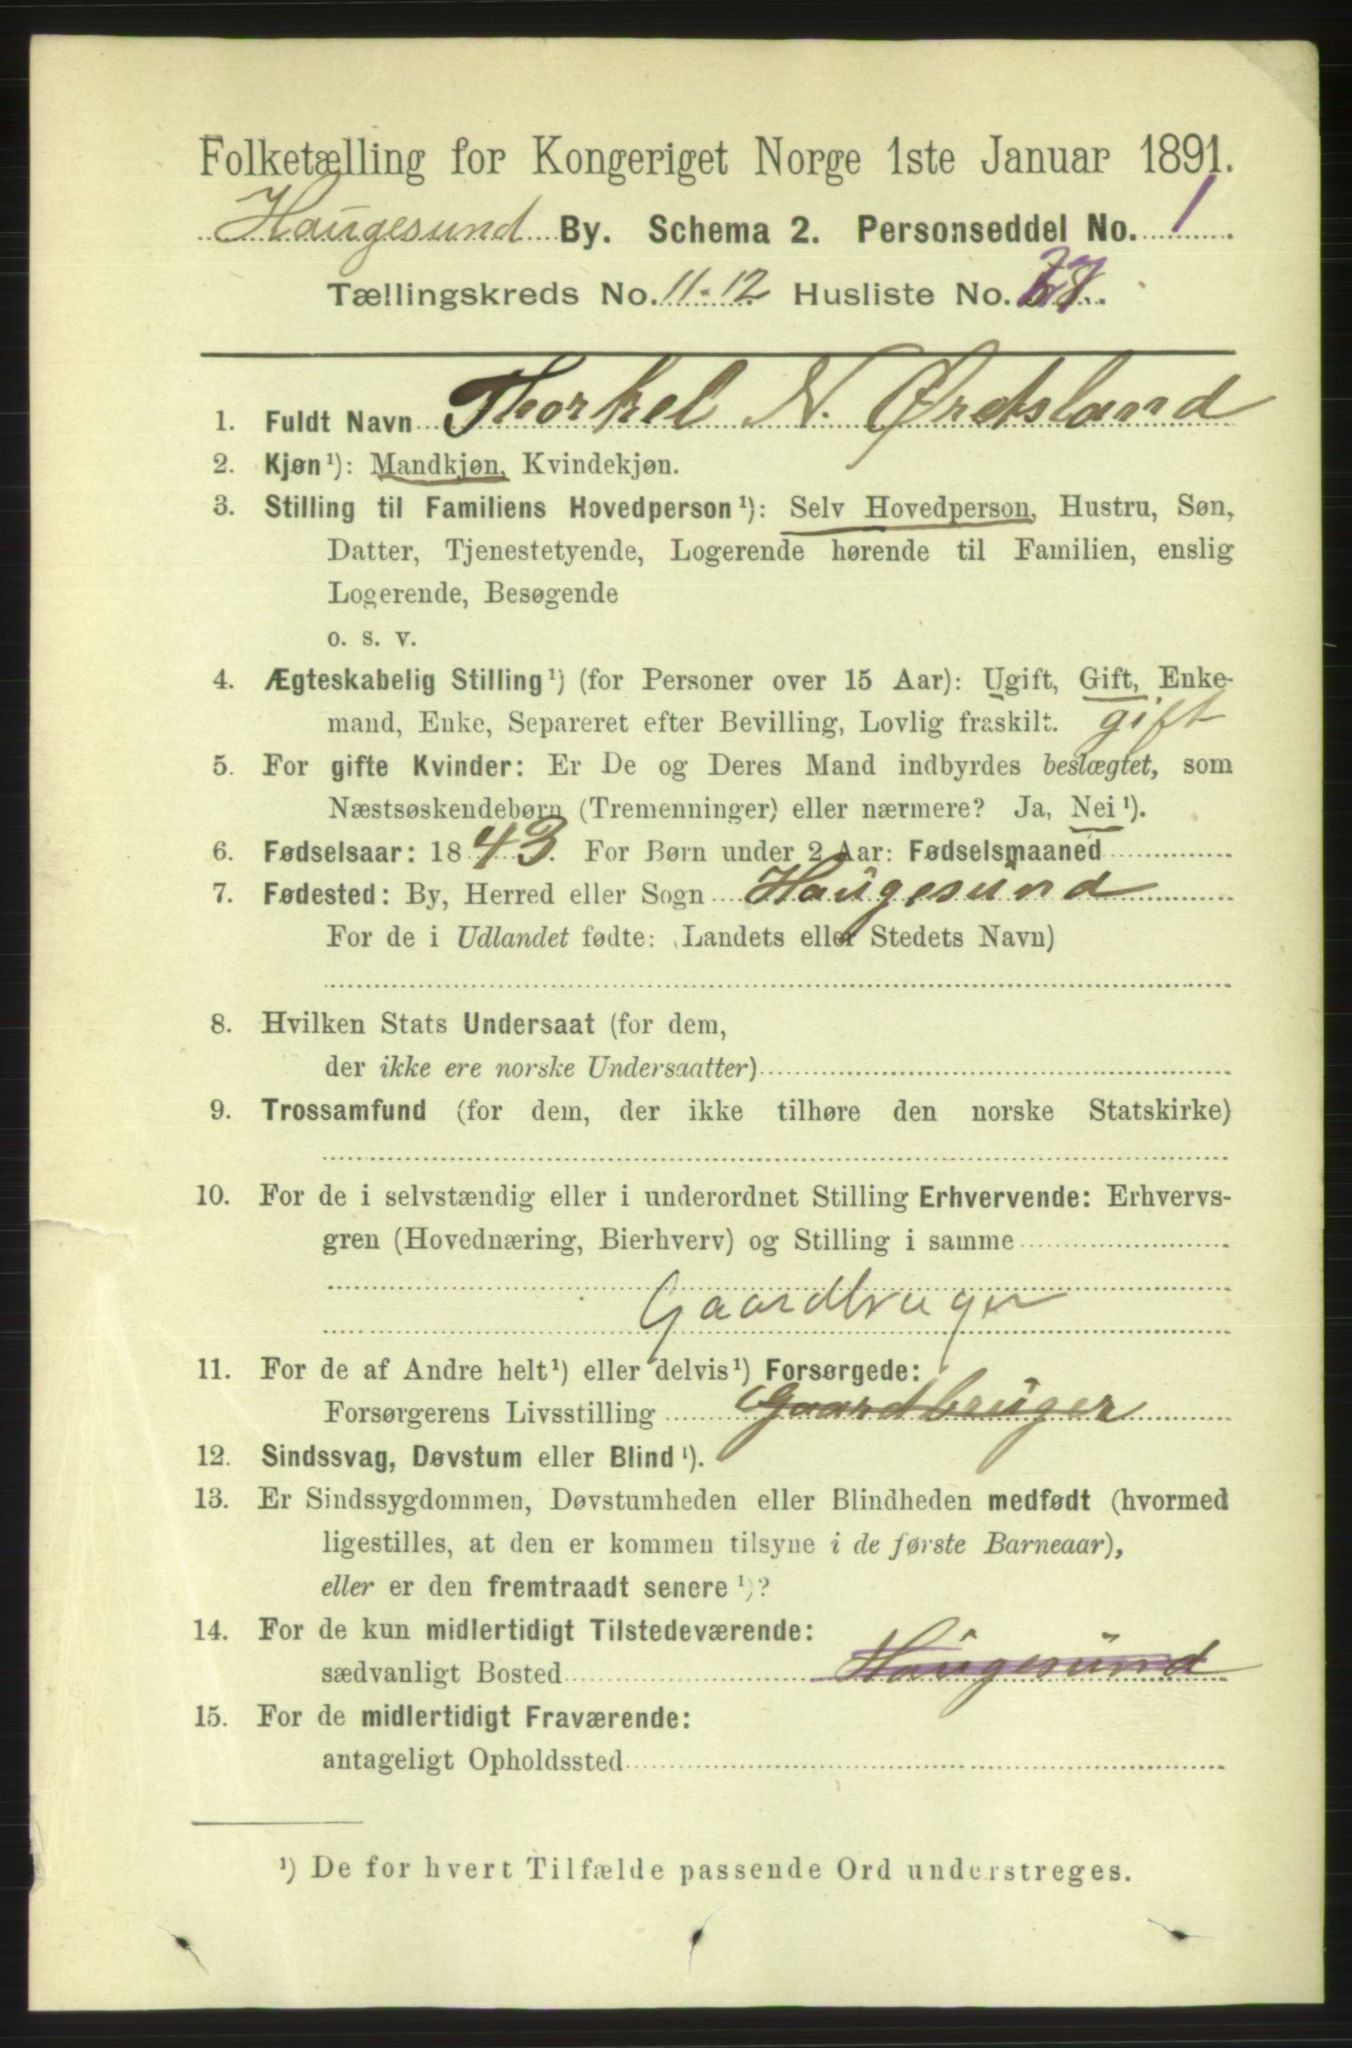 Folketælling for Kongeriget Norge 1ste Januar 1891.
Haugesund By. Schema 2. Personseddel No. 1
Tællingskreds No. 11-12 Husliste No.
1. Fuldt Navn Thorkel N. Ørdsland
2. Kjøn¹): Mandkjøn, Kvindekjøn.
3. Stilling til Familiens Hovedperson¹): Selv Hovedperson, Hustru, Søn,
Datter, Tjenestetyende, Logerende hørende til Familien, enslig
Logerende, Besøgende
o. s. v.
4. Ægteskabelig Stilling¹) (for Personer over 15 Aar): Ugift, Gift, Enke-
mand, Enke, Separeret efter Bevilling, Lovlig fraskilt. gift
5. For gifte Kvinder: Er De og Deres Mand indbyrdes beslægtet, som
Næstsøskendebørn (Tremenninger) eller nærmere? Ja, Nei¹).
6. Fødselsaar: 1843. For Børn under 2 Aar: Fødselsmaaned
7. Fødested: By, Herred eller Sogn Haugesund
For de i Udlandet fødte: (Landets eller Stedets Navn)
8. Hvilken Stats Undersaat (for dem,
der ikke ere norske Undersaatter)
9. Trossamfund (for dem, der ikke tilhøre den norske Statskirke)
10. For de i selvstændig eller i underordnet Stilling Erhvervende: Erhvervs-
gren (Hovednæring, Bierhverv) og Stilling i samme
Gaardbruger
11. For de af Andre helt¹) eller delvis¹) Forsørgede:
Forsørgerens Livsstilling Gaardbruger
12. Sindssvag, Døvstum eller Blind¹).
13. Er Sindssygdommen, Døvstumheden eller Blindheden medfødt (hvormed
ligestilles, at den er kommen tilsyne i de første Barneaar),
eller er den fremtraadt senere¹)?
14. For de kun midlertidigt Tilstedeværende:
sædvanligt Bosted Haugesund
15. For de midlertidigt Fraværende:
antageligt Opholdssted
¹) De for hvert Tilfælde passende Ord understreges.